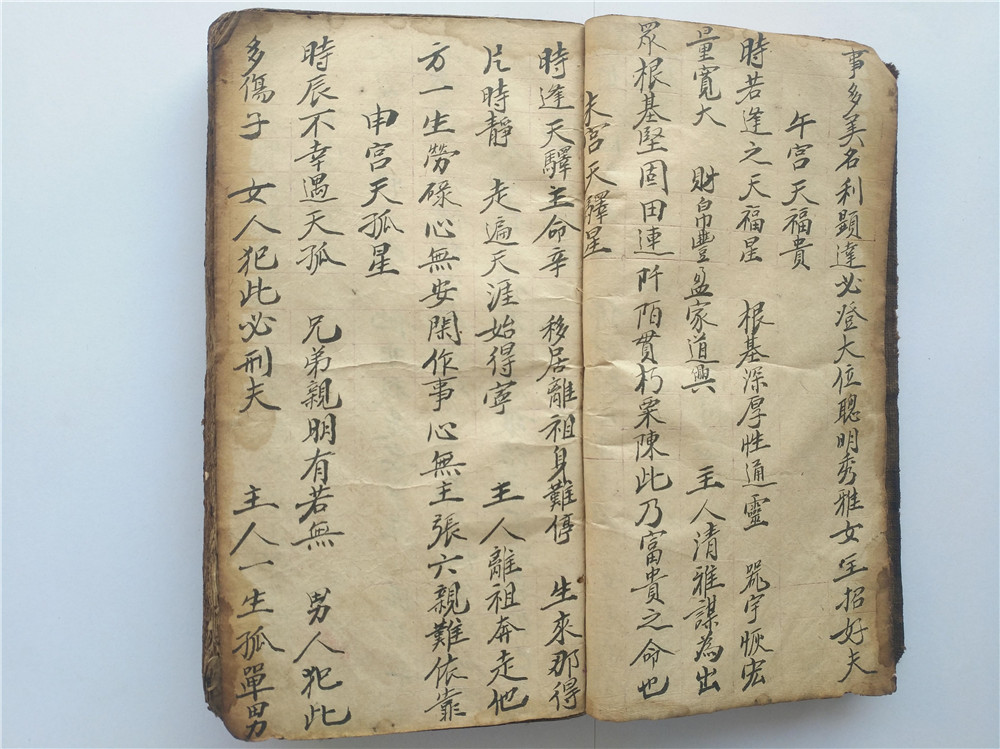 事多美名利顕達必澄大位聰明秀雅女主招好夫
午宮天福貴
時若逢之天福星 根基深厚性通靈 器宇恢宏
量寬大 財帛豐盈家道興 主人清雅謀為出
眾根基堅固田連阡陌貫朽粟陳此乃富貴之命也
未宮天驛星
時逢天驛主命辛 移居離祖身難停 生來那得
片時靜 走遍天涯始得寧 主人離祖奔走他
方一生勞碌心無安閑作事心無主張六親難依靠
申宮天孤星
時辰不幸遇天孤 兄弟親朋有若無 男人犯此
多傷子 女人犯此必刑夫 主人一生孤單男